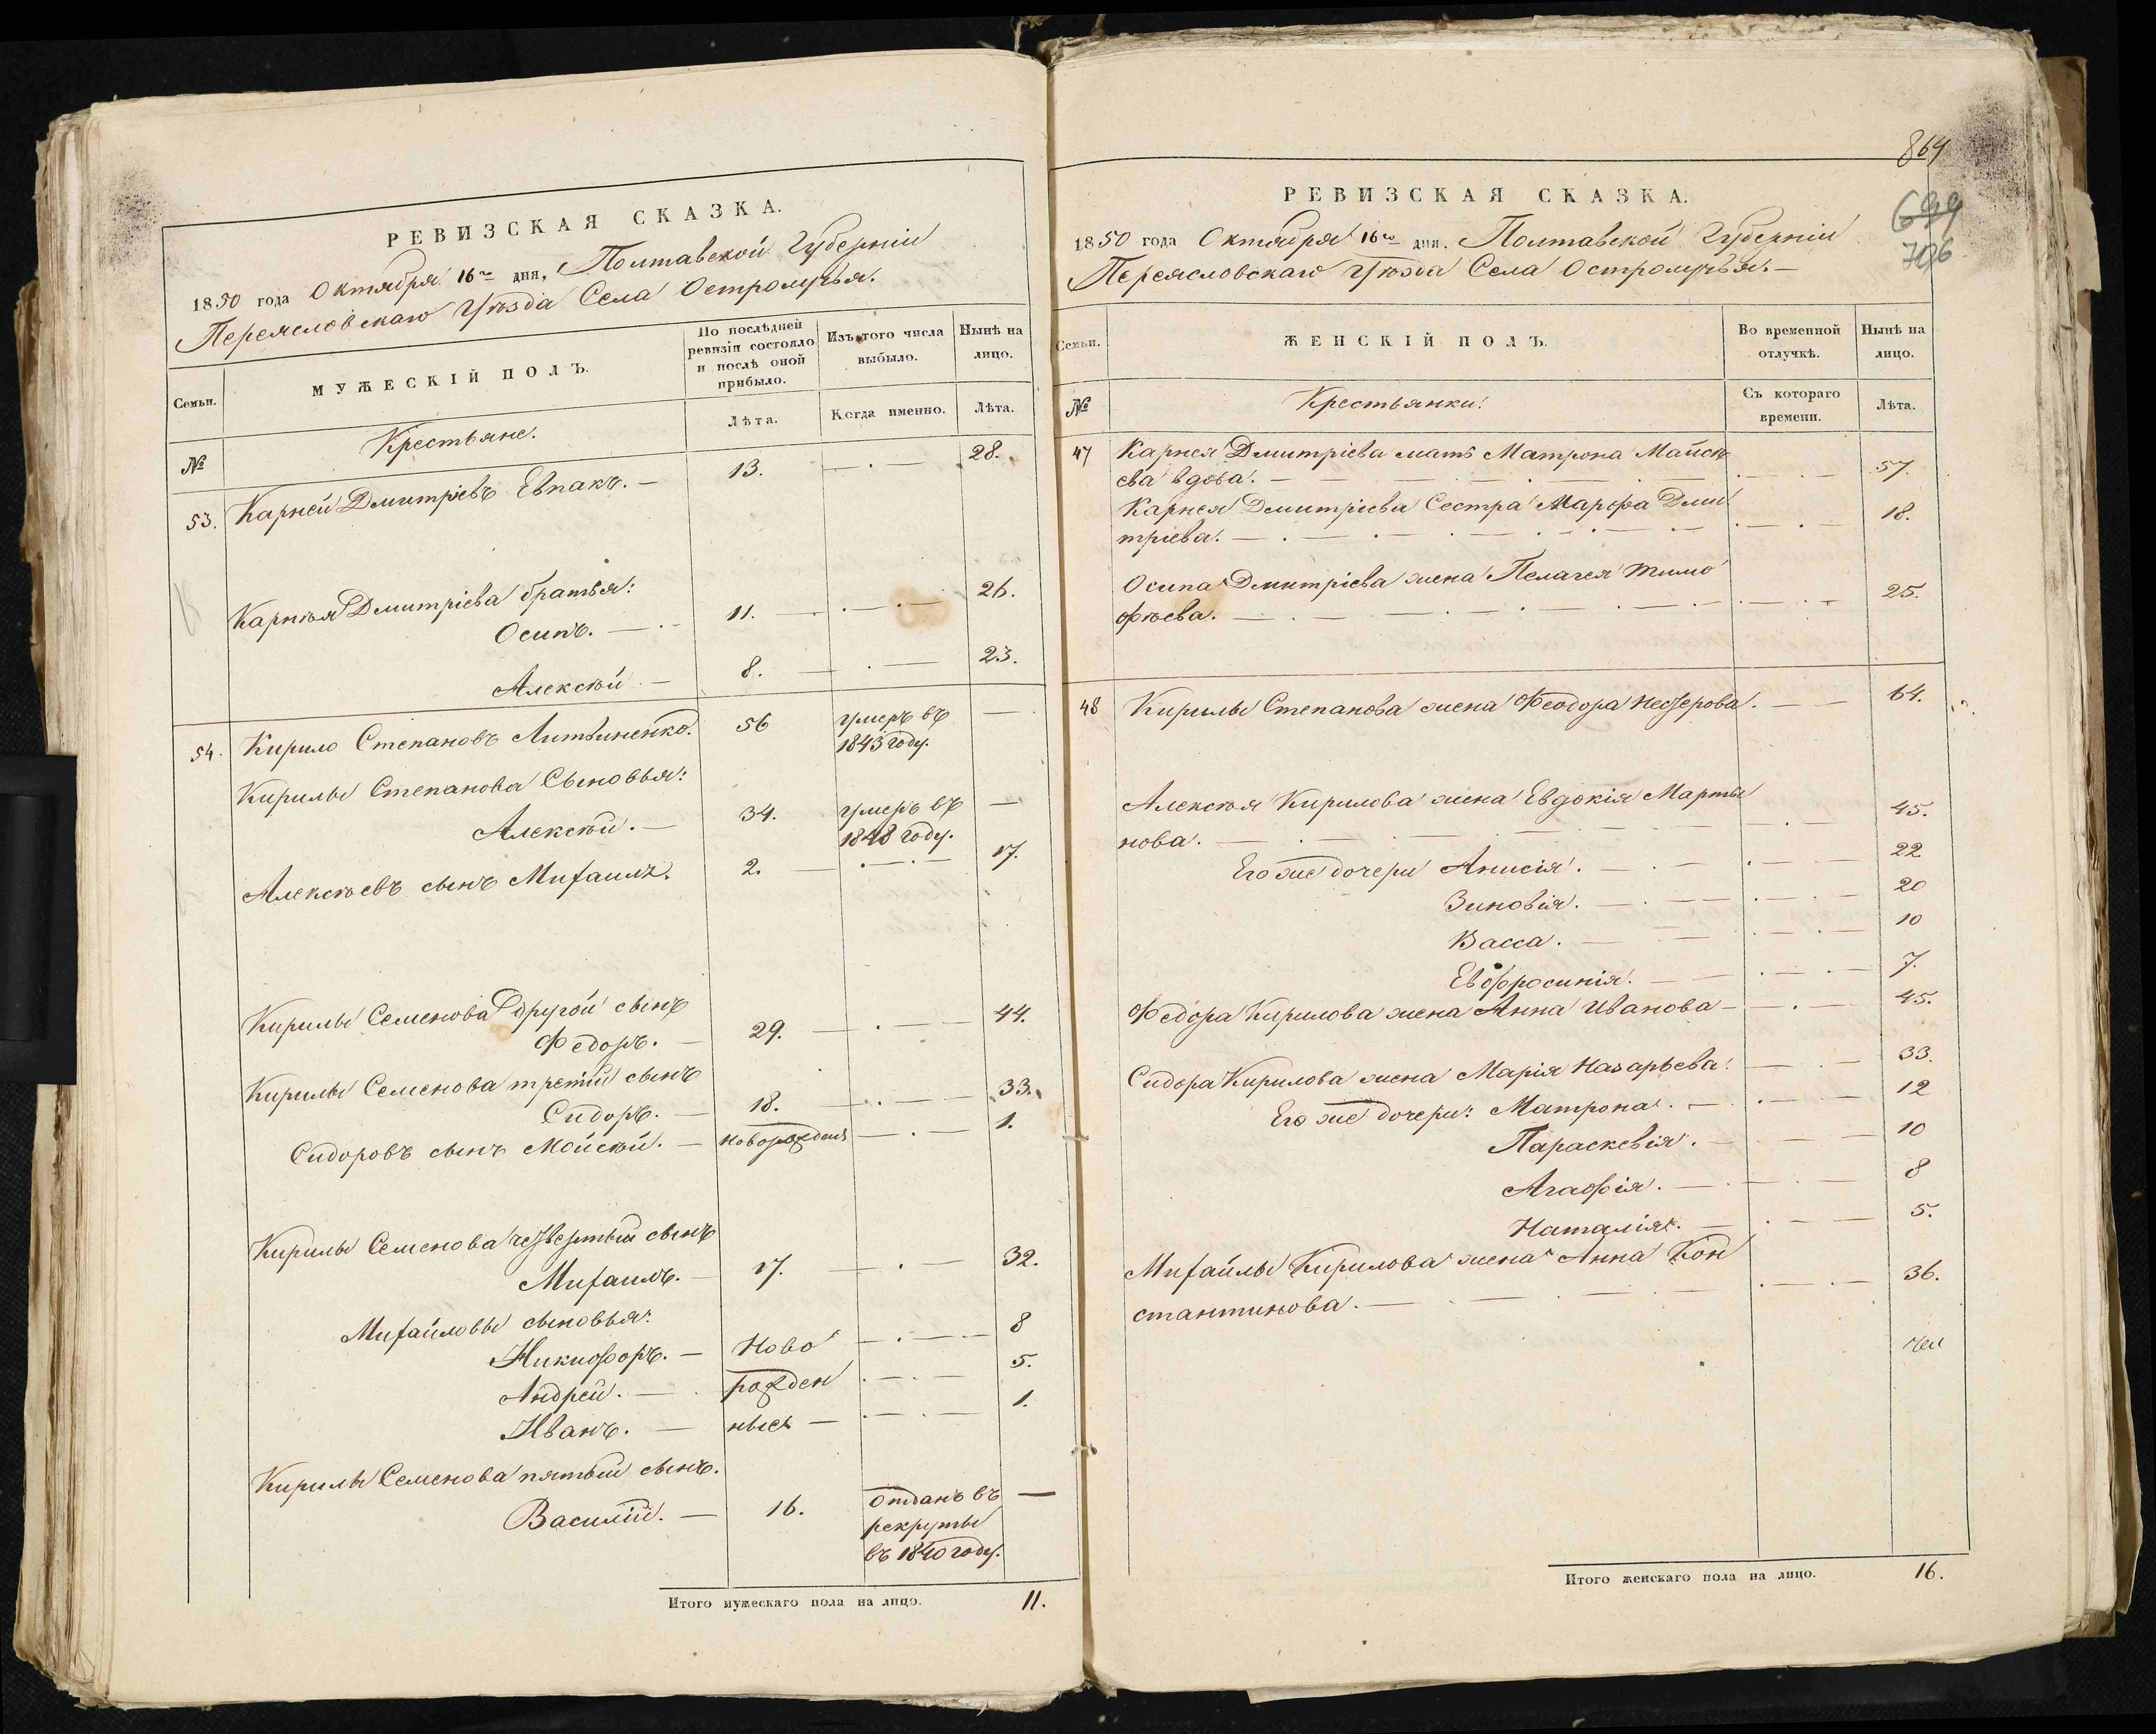 РЕВИЗСКАЯ СКАЗКА.
1850 года Октября 16го дня, Полтавской Губерніи
Переясловскаго Уѣзда Села Остролучья.
Семьи.
МУЖЕСКІЙ ПОЛЪ.
По послѣдней
ревизіи состояло
и послѣ оной
прибыло.
Изъ того числа
выбыло.
Нынѣ на
лицо.
№
Крестьяне.
Лѣта.
Когда именно.
Лѣта.
53. Карней Дмитріевъ Евпакъ. — 13. — . 28.
Карнѣя Дмитріева братья:
Осипъ. — 11. — . — 26.
Алексѣй — 8. — . — 23.
54. Кирило Степановъ Литвиненко. 56 умеръ въ —
1843 году.
Кирилы Степанова Сыновья:
Алексѣй. — 34. умеръ въ —
1848 году.
Алексѣевъ сынъ Михаилъ. 2. — . — 17.
Кирилы Семенова другой сынъ
Федоръ. — 29. — . — 44.
Кирилы Семенова третій сынъ
Сидоръ. — 18. — . — 33.
Сидоровъ сынъ Мойсѣй. — новорожденъ — . — 1.
Кирилы Семенова четвертый сынъ
Михаилъ. — 17. — . — 32.
Михайловы сыновья:
Никифоръ. — Ново — . — 8
Андрей. — рожден . — . — 5.
Иванъ. — ные — . — . — 1.
Кирилы Семенова пятый сынъ.
Василій. — 16. Отданъ въ —
рекруты
въ 1840 году.
Итого мужескаго пола на лицо. 11.
864
699
706
РЕВИЗСКАЯ СКАЗКА.
1850 года Октября 16го дня. Полтавской Губерніи
Переясловскаго Уѣзда Села Остролучья. —
Семьи.
ЖЕНСКІЙ ПОЛЪ.
Во временной
отлучкѣ.
Нынѣ на
лицо.
№
Крестьянки.
Съ котораго
времени.
Лѣта.
47 Карнея Дмитріева мать Матрона Майсѣ
ева вдова. — 57.
Карнея Дмитріева Сестра Марфа Дми
тріева. — 18.
Осипа Дмитріева жена Пелагея Тимо
фѣева. — 25.
48 Кирилы Степанова жена Феодора Нестерова. — 64.
Алексѣя Кирилова жена Евдокія Марты
нова. — 45.
Его же дочери Анисія. — 22
Зиновія. — 20
Васса. — 10
Евфросинія. — 7.
Федора Кирилова жена Анна Иванова — 45.
Сидора Кирилова жена Марія Назарьева. — 33.
Его же дочери: Матрона. — 12
Параскевія. — 10
Агафія. — 8
Наталія. — 5.
Михайлы Кирилова жена Анна Кон
стантинова. — 36.
Итого женскаго пола на лицо. 16.